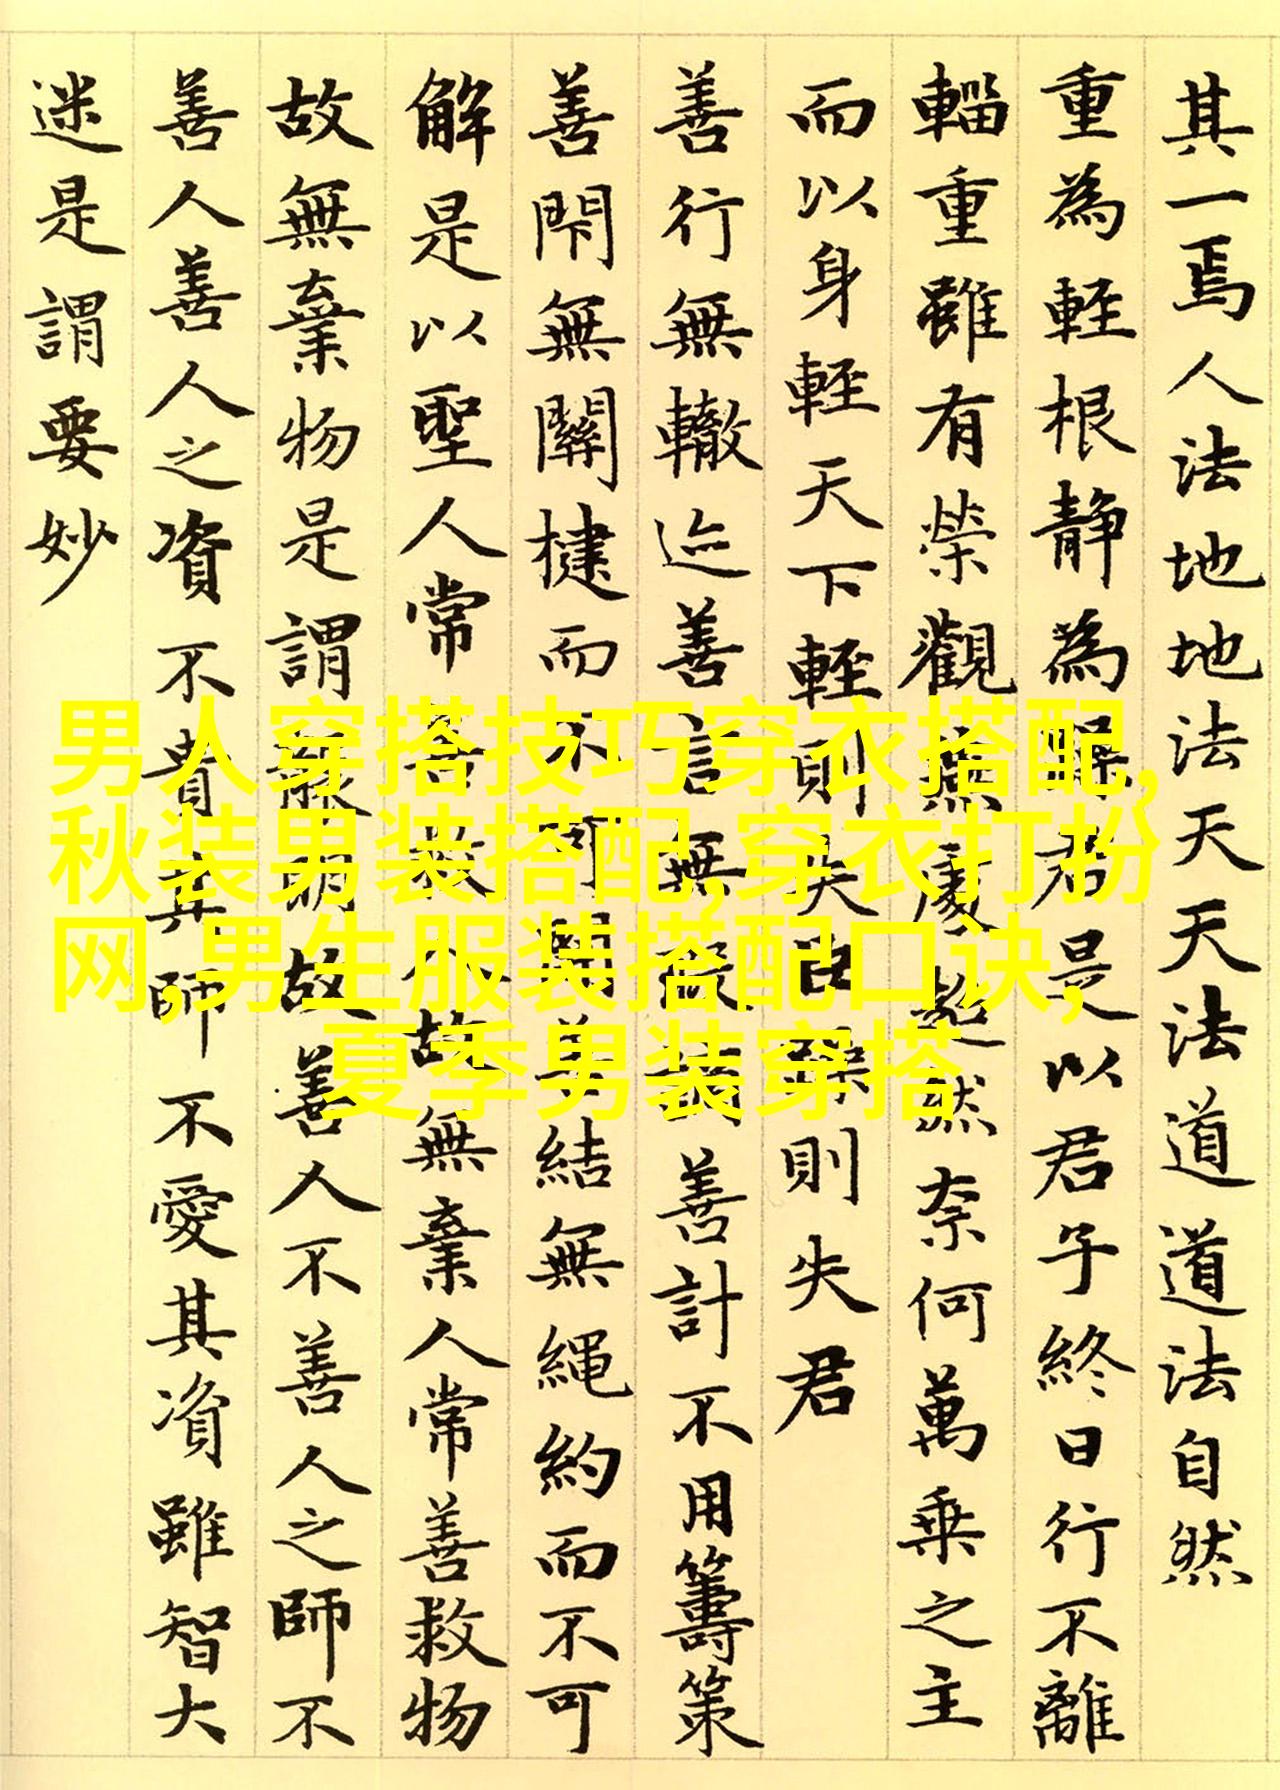 其一焉人法地地法天天法道道法自然
重為輕根靜為躁君是以君子終日行不離
輜重雖有榮觀燕處超然奈何萬乘之主
而以身輕天下輕則失臣躁則失君
善行無轍迹善言無瑕謫善計不用籌策
善閇無關楗而不可開善結無繩約而不可
解是以聖人常善救人故無棄人常善救物
故無棄物是謂襲明故善人不善人之師不
善人善人之資不貴其師不愛其資雖智大
迷是謂要妙
男人穿搭技巧穿衣搭配,
秋装男装搭配,穿衣打扮
网,男生服装搭配口诀,
夏季男装穿搭